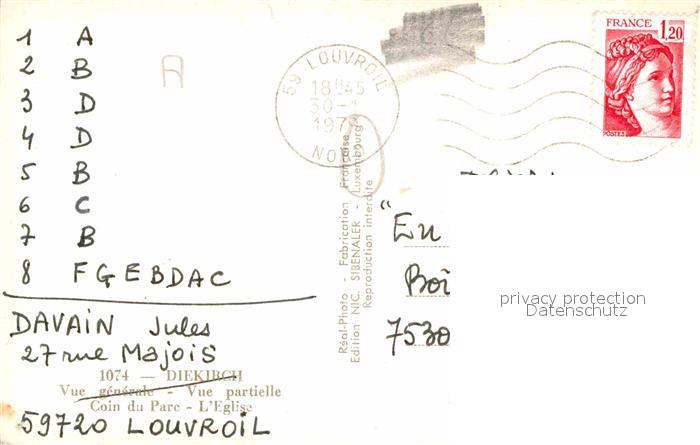 1 A
2 B
3 D
4 D
5 B
6 C
7 B
8 F G E B D A C
DAVAIN Jules
27 rue Majois
1074 — DIEKIRCH
Vue générale - Vue partielle
Coin du Parc - L'Eglise
59720 LOUVROIL
A
59 LOUVROIL
18H45
30-1
197
NO
FRANCE
1,20
POSTES
Réal-Photo - Fabrication Française
Edition NIC. SIBENALER - Luxembourg
Reproduction interdite
"En
Boî
7530
privacy protection
Datenschutz